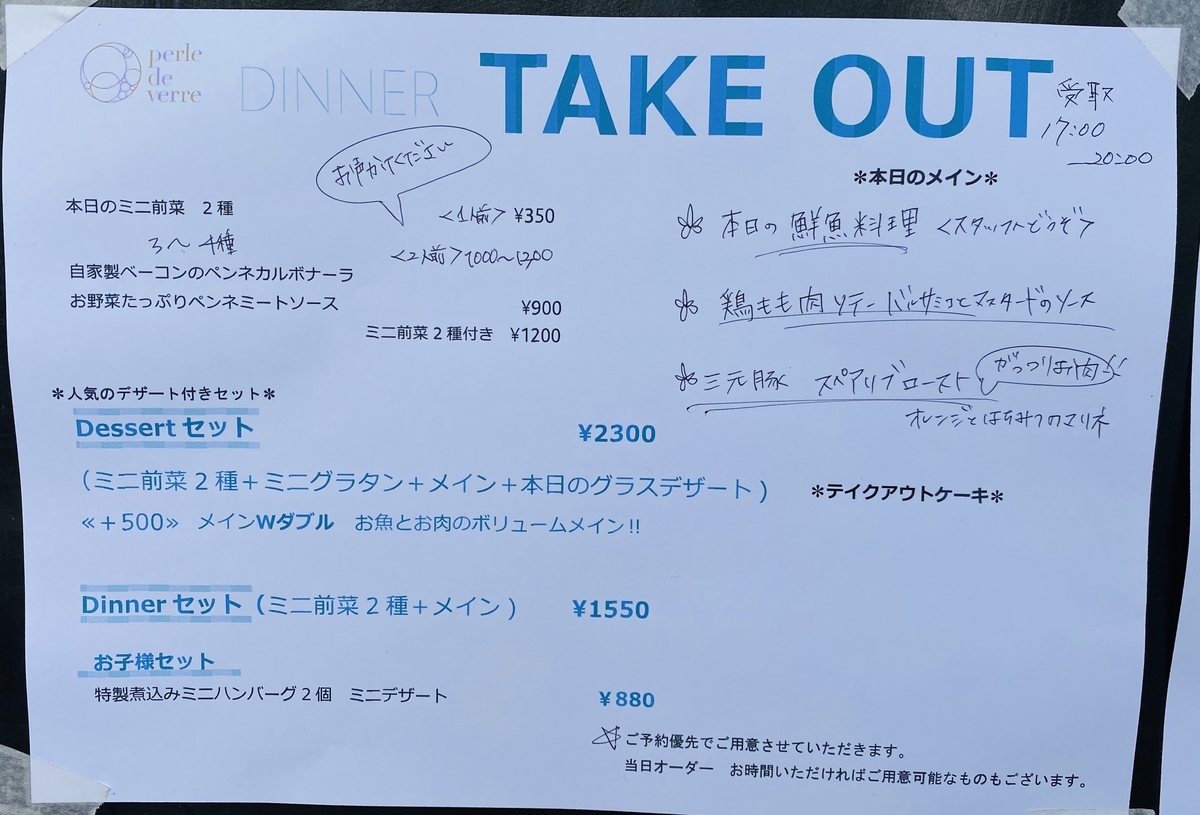 perle
de
verre
DINNER TAKE OUT
受取
17:00
20:00
お声かけください
本日のミニ前菜 2種 <1人前> ¥350
3〜4種 <2人前> 1000〜1200
自家製ベーコンのペンネカルボナーラ
お野菜たっぷりペンネミートソース ¥900
ミニ前菜2種付き ¥1200
*人気のデザート付きセット*
Dessertセット ¥2300
(ミニ前菜2種+ミニグラタン+メイン+本日のグラスデザート)
≪+500≫ メインWダブル お魚とお肉のボリュームメイン!!
Dinnerセット(ミニ前菜2種+メイン) ¥1550
お子様セット
特製煮込みミニハンバーグ2個 ミニデザート ¥880
*本日のメイン*
本日の鮮魚料理 <スタッフへどうぞ>
鶏もも肉ソテー バルサミコとマスタードのソース
三元豚 スペアリブロースト
がっつりお肉!!
オレンジとはちみつのマリネ
*テイクアウトケーキ*
☆ご予約優先でご用意させていただきます。
当日オーダー お時間いただければご用意可能なものもございます。